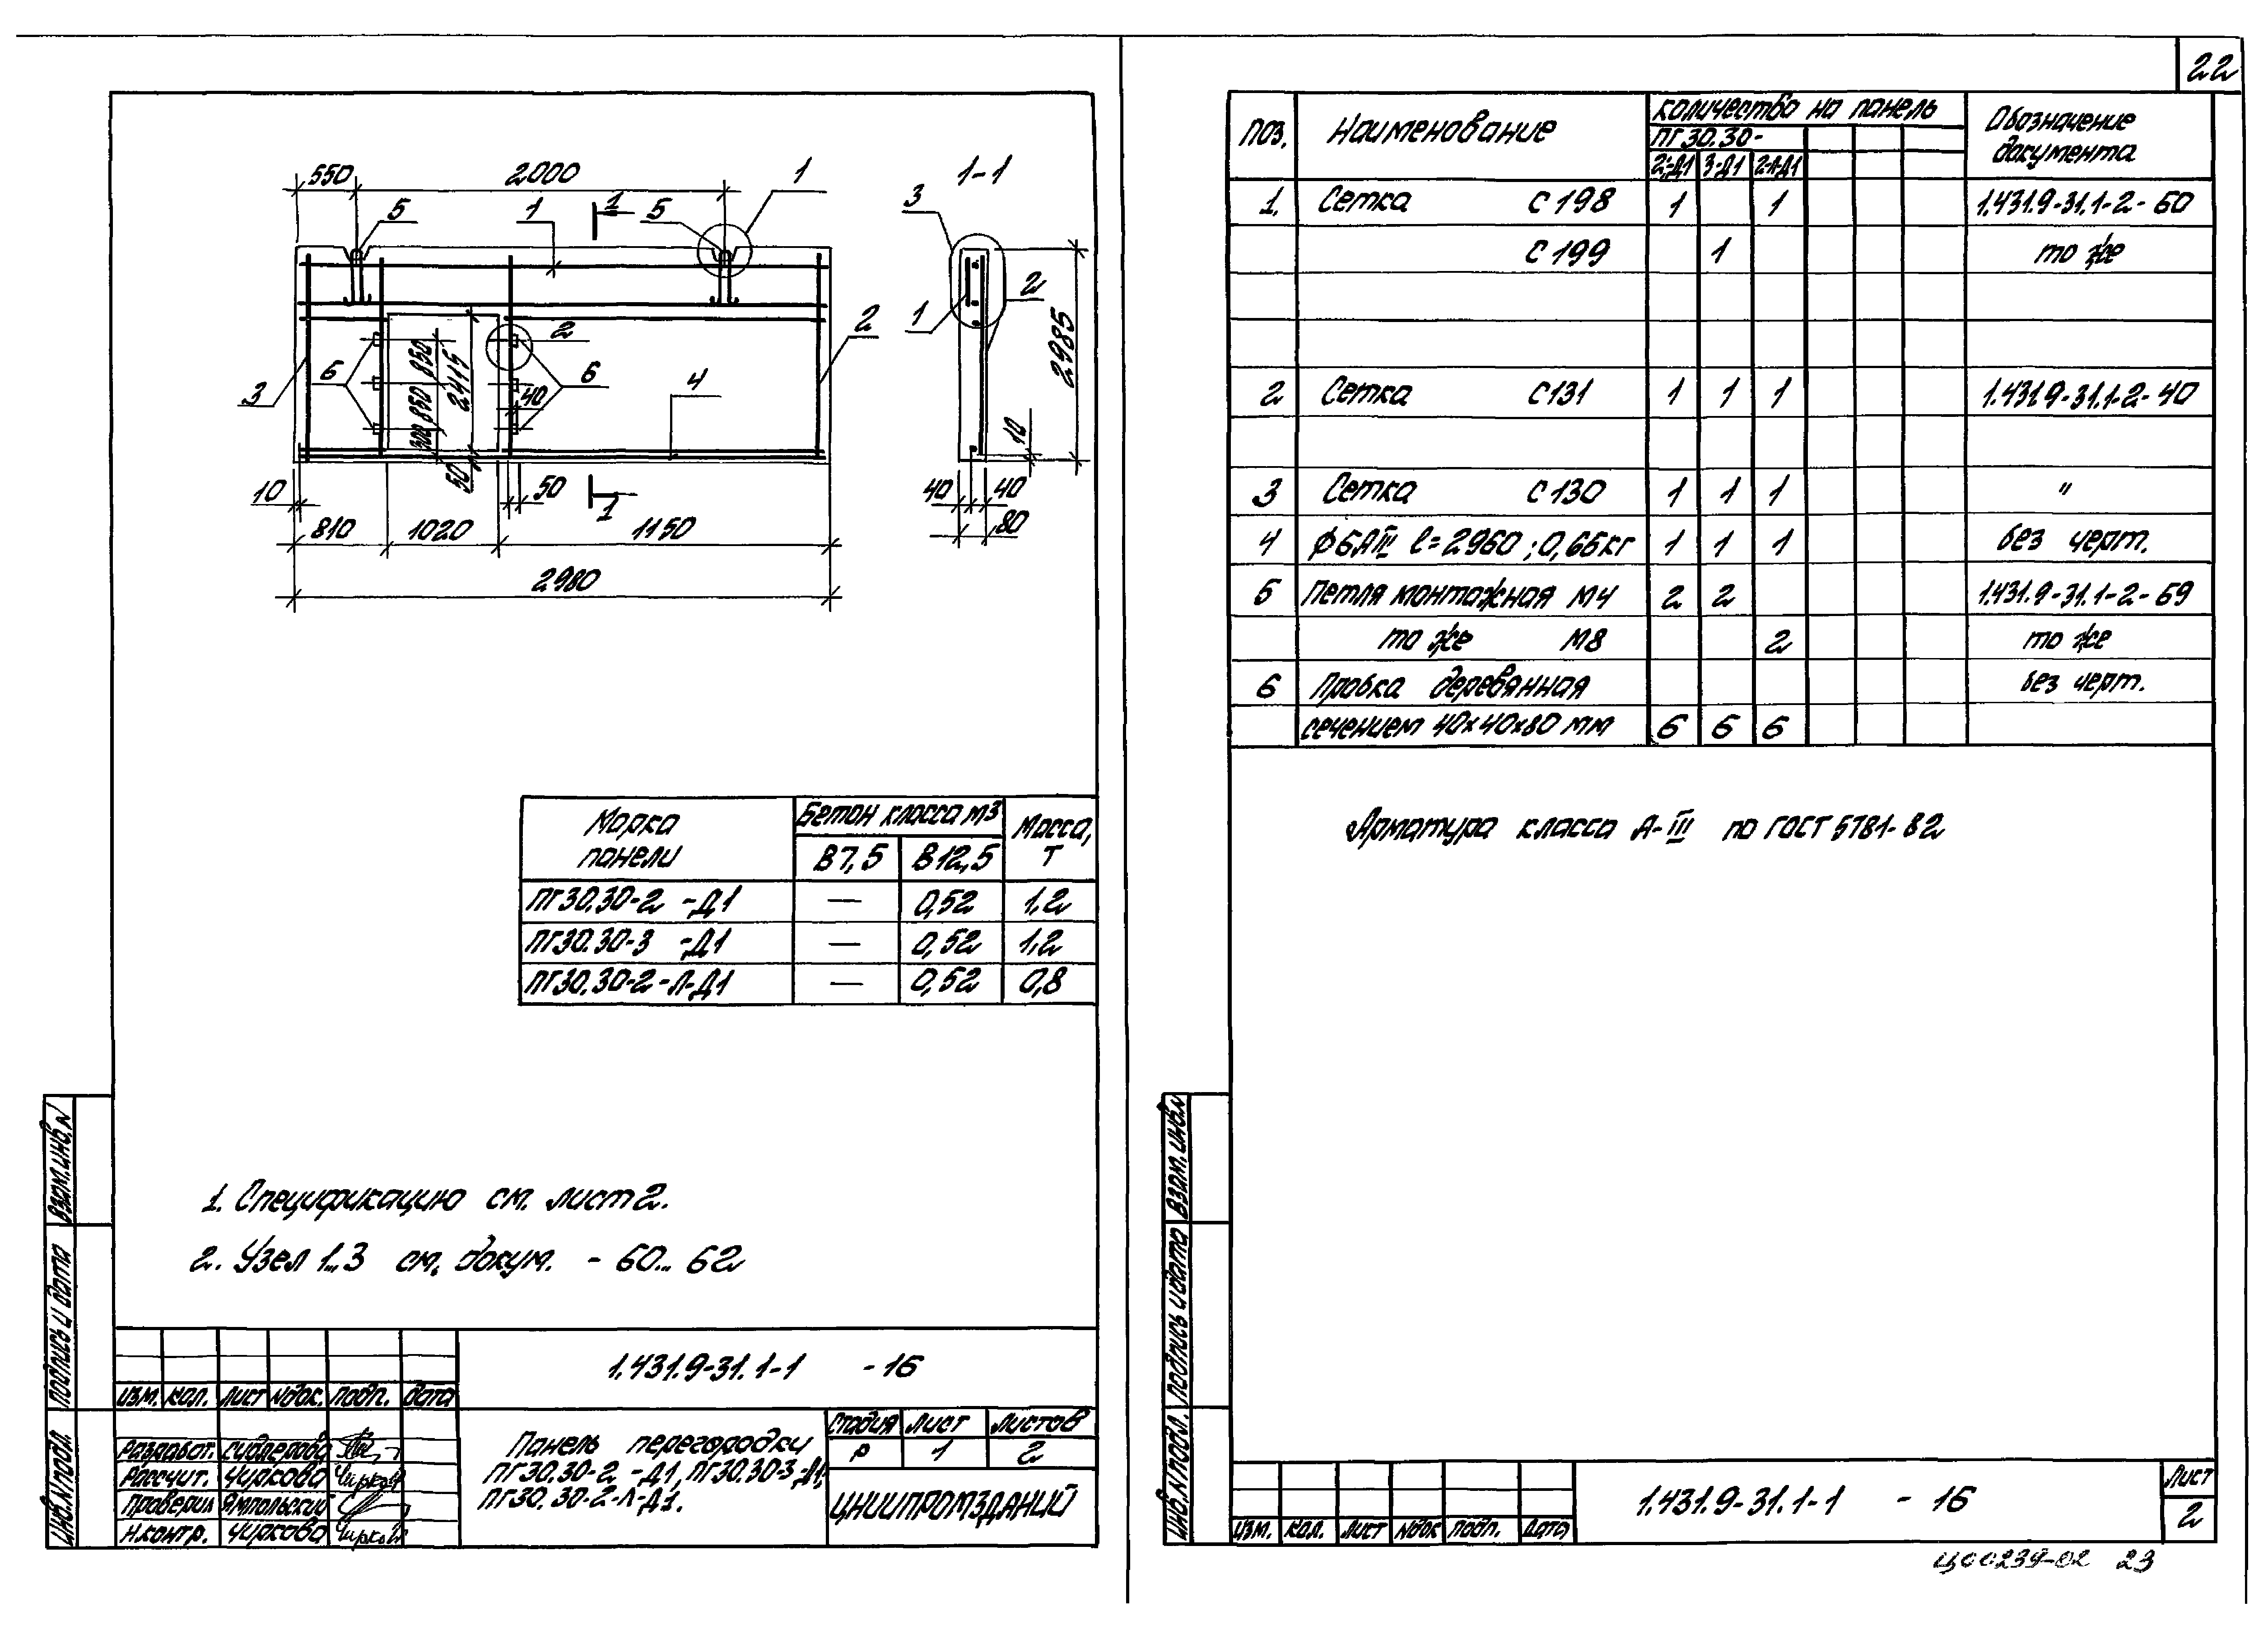 22
550 2000 1
5 1 1 5
2
3 6 850 850 300 2415 50 40 6 4
10 50 1
810 1020 1150
2980
1-1
3 2 1
2985
10
40 40
80
Марка панели Бетон класса м3 Масса, т
В7,5 В12,5
ПГ30.30-2 -Д1 — 0,52 1,2
ПГ30.30-3 -Д1 — 0,52 1,2
ПГ30.30-2-Л-Д1 — 0,52 0,8
1. Спецификацию см. лист 2.
2. Узел 1...3 см. докум. - 60... 62
1.431.9-31.1-1 -16
Изм. Кол. Лист Nдок. Подп. Дата
Разработ. Сидлерова
Рассчит. Чиркова
Проверил Ямпольский
Н.контр. Чиркова
Панель перегородки
ПГ30.30-2 -Д1, ПГ30.30-3 -Д1,
ПГ30.30-2-Л-Д1.
Стадия Лист Листов
Р 1 2
ЦНИИПРОМЗДАНИЙ
Инв.N подл. Подпись и дата Взам.инв.N
Поз. Наименование Количество на панель Обозначение документа
ПГ30.30-
2-Д1 3-Д1 2-Л-Д1
1. Сетка С 198 1 1 1.431.9-31.1-2-60
С 199 1 то же
2 Сетка С131 1 1 1 1.431.9-31.1-2-40
3 Сетка С130 1 1 1 "
4 ф6АIII l=2960; 0,66кг 1 1 1 без черт.
5 Петля монтажная М4 2 2 1.431.9-31.1-2-69
то же М8 2 то же
6 Пробка деревянная без черт.
сечением 40х40х80 мм 6 6 6
Арматура класса А-III по ГОСТ 5781-82
Инв.N подл. Подпись и дата Взам.инв.N
Изм. Кол. Лист Nдок Подп. Дата
1.431.9-31.1-1 - 16
Лист
2
Ц00234-02 23